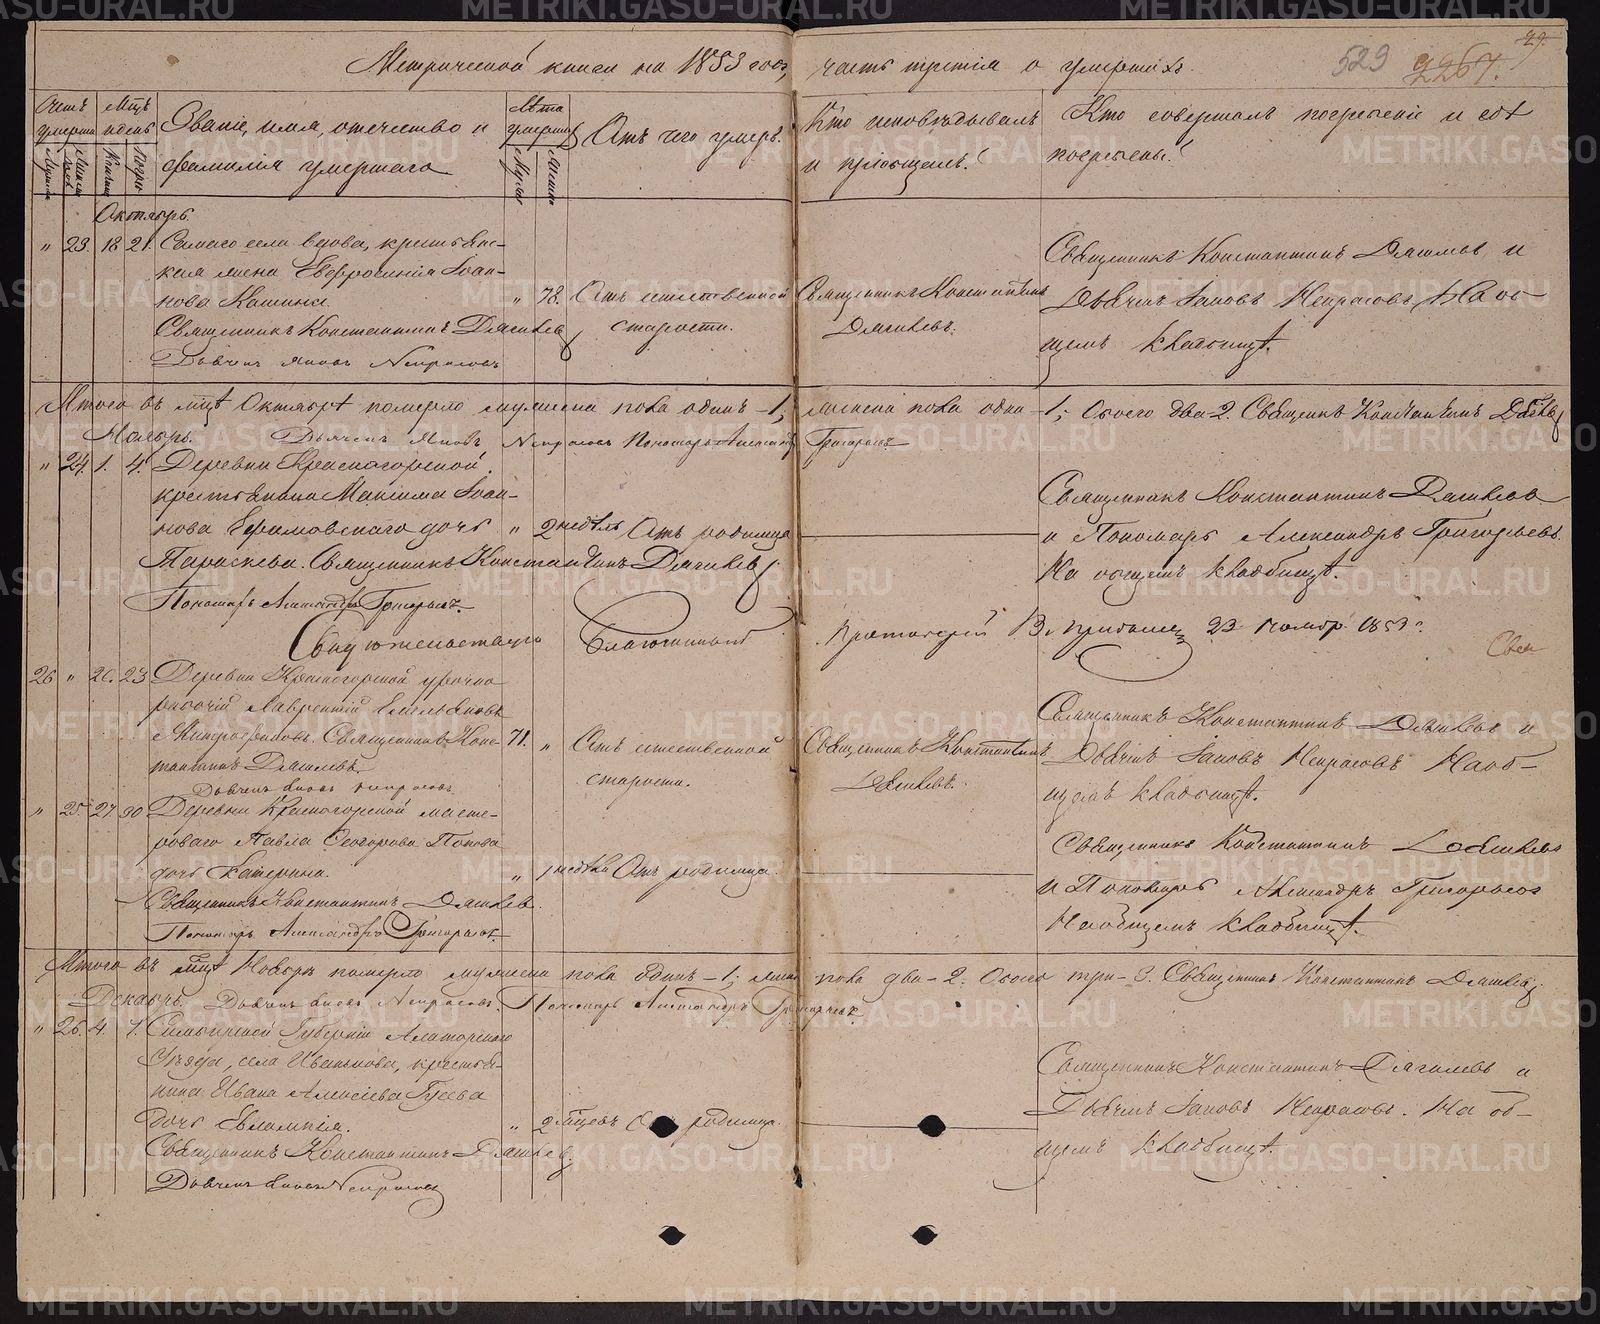 Метрической книги на 1853 годъ, часть третія о умершихъ.
529 2267.
Счетъ умерших
Мужеска
Женска
Мцъ и день
Кончины
Погреб
Званіе, имя, отечество и фамилія умершаго
Лѣта умершаго
Мужес
Женск
Отъ чего умеръ.
Кто исповѣдывалъ и пріобщалъ?
Кто совершалъ погребеніе и гдѣ погребены?
Октябрь.
" 23. 18 21. Самаго села вдова, крестьянс-
кая жена Евфросинія Іоан-
нова
" 78. Отъ естественной
старости.
Священникъ Константинъ
Дягилевъ.
Священникъ Константинъ Дягилевъ и
Дьячекъ Іаковъ Некрасовъ. На об-
щемъ кладбищѣ.
Священникъ Константинъ Дягилевъ
Дьячекъ Яковъ Некрасовъ
Итого въ мцѣ Октябрѣ померло мужеска пола одинъ – 1, женска пола одна – 1, Обоего два 2. Священникъ Константинъ Дягилевъ
Ноябрь. Дьячекъ Яковъ Некрасовъ Пономарь Александръ Григорьевъ
" 24. 1. 4. Деревни Красногорской
крестьянина Максима Іоан-
нова Ефимовскаго дочь
Параскева. Священникъ Константинъ Дягилевъ
Пономарь Александръ Григорьевъ.
" 2 недѣль Отъ родимца
Священникъ Константинъ Дягилевъ
и Пономарь Александръ Григорьевъ.
На общемъ кладбищѣ.
Благочинный Протоіерей 23 Ноябр. 1853 г.
26 " 20. 23 Деревни Красногорской урочно
рабочій Лаврентій Емельяновъ
Митрофановъ. Священникъ Конс-
тантинъ Дягилевъ
Дьячекъ Яковъ Некрасовъ
71. " Отъ естественной
старости.
Священникъ Константинъ
Дягилевъ.
Священникъ Константинъ Дягилевъ и
Дьячекъ Іаковъ Некрасовъ На об-
щемъ кладбищѣ.
" 25. 27. 30 Деревни Красногорской масте-
роваго Павла Попова
дочь Катерина.
Священникъ Константинъ Дягилев.
Пономарь Александръ Григорьев.
" 1 недѣли Отъ родимца.
Священникъ Константинъ Дягилевъ
и Пономарь Александръ Григорьевъ
На общемъ кладбищѣ.
Итого въ мцѣ Ноябрѣ померло мужеска пола одинъ – 1; женска пола два – 2. Обоего три – 3. Священникъ Константинъ Дягилев.
Декабрь. Дьячекъ Яковъ Некрасовъ. Пономарь Александръ Григорьевъ.
" 26. 4. 7. Симбирской Губерніи Алаторскаго
Уѣзда, села Иванькова, крестья-
нина Ивана Алексіева Гусева
дочь Евлампія.
Священникъ Константинъ Дягилев
Дьячекъ Яковъ Некрасовъ
" 2 мѣсцевъ родимца.
Священникъ Константинъ Дягилевъ и
Дьячекъ Іаковъ Некрасовъ. На об-
щемъ кладбищѣ.
METRIKI.GASO-URAL.RU